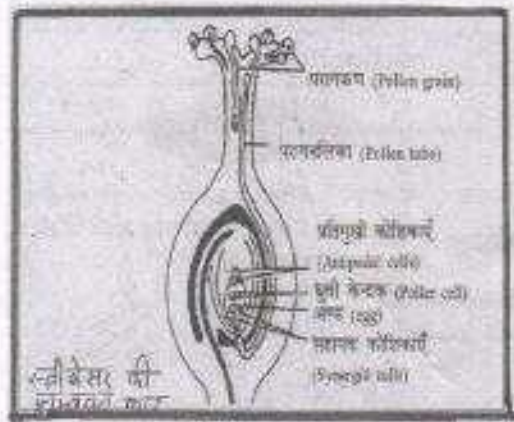 परागकण (Pollen grain)
परागनलिका (Pollen tube)
प्रतिमुखी कोशिकाएँ
(Antipodal cells)
ध्रुवी केन्द्रक (Poller cell)
अण्ड (egg)
सहायक कोशिकाएँ
(Synergid cells)
स्त्रीकेसर की
काट